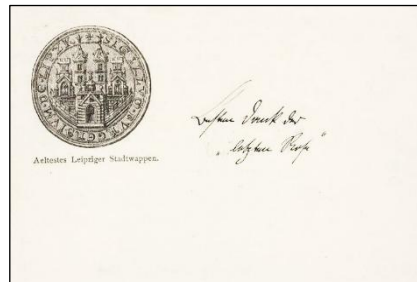 Aeltestes Leipziger Stadtwappen.
Besten Dank der
„letzten Rose“